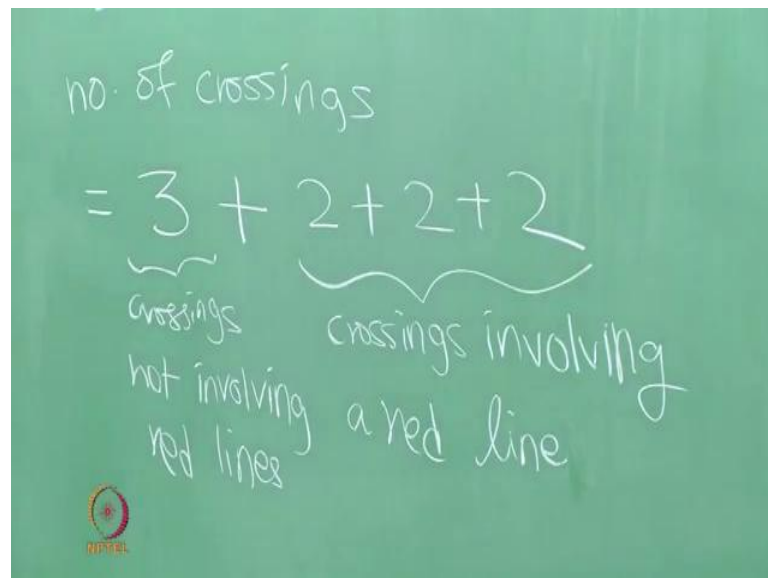 no. of crossings
= 3 + 2 + 2 + 2
crossings
not involving
red lines
crossings involving
a red line
NPTEL